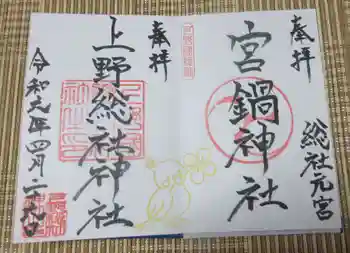 奉拝
総社元宮
宮鍋神社
奉拝
上野総社神社
令和六年四月二十九日